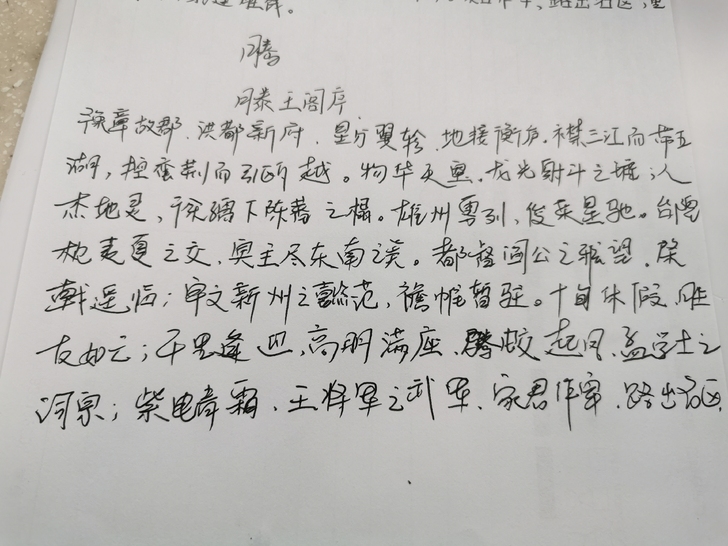 滕
滕王阁序
豫章故郡，洪都新府，星分翼轸，地接衡庐，襟三江而带五
湖，控蛮荆而引瓯越。物华天宝，龙光射斗之墟；人
杰地灵，徐孺下陈蕃之榻。雄州雾列，俊采星驰。台隍
枕夷夏之交，宾主尽东南之美。都督阎公之雅望，棨
戟遥临；宇文新州之懿范，襜帷暂驻。十旬休假，胜
友如云；千里逢迎，高朋满座，腾蛟起凤，孟学士之
词宗；紫电青霜，王将军之武库，家君作宰，路出名区，